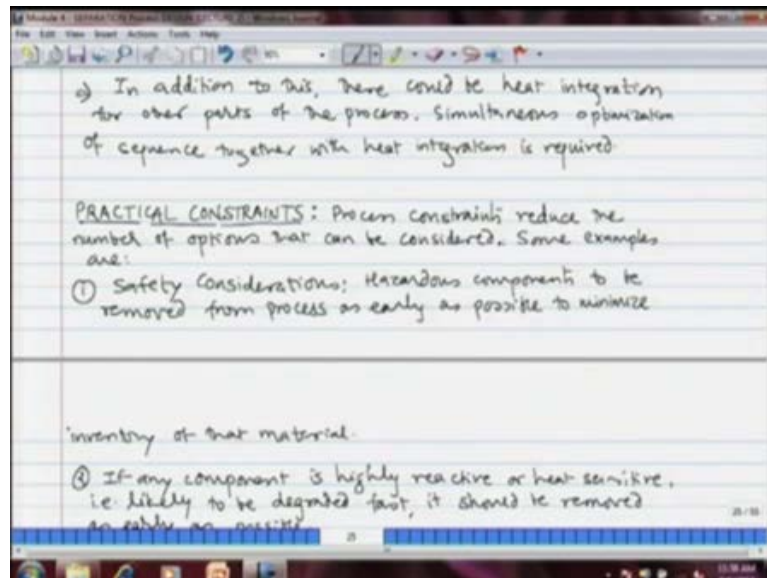 Module 4 - SEPARATION Process DESIGN (LECTURE 2) - Windows Journal
File Edit View Insert Actions Tools Help
c) In addition to this, there could be heat integration
for other parts of the process. Simultaneous optimization
of sequence together with heat integration is required.
PRACTICAL CONSTRAINTS: Process constraints reduce the
number of options that can be considered. Some examples
are:
① Safety Considerations: Hazardous component to be
removed from process as early as possible to minimize
inventory of that material.
② If any component is highly reactive or heat sensitive,
i.e. likely to be degraded fast, it should be removed
as early as possible
25 / 55
25
11:38 AM